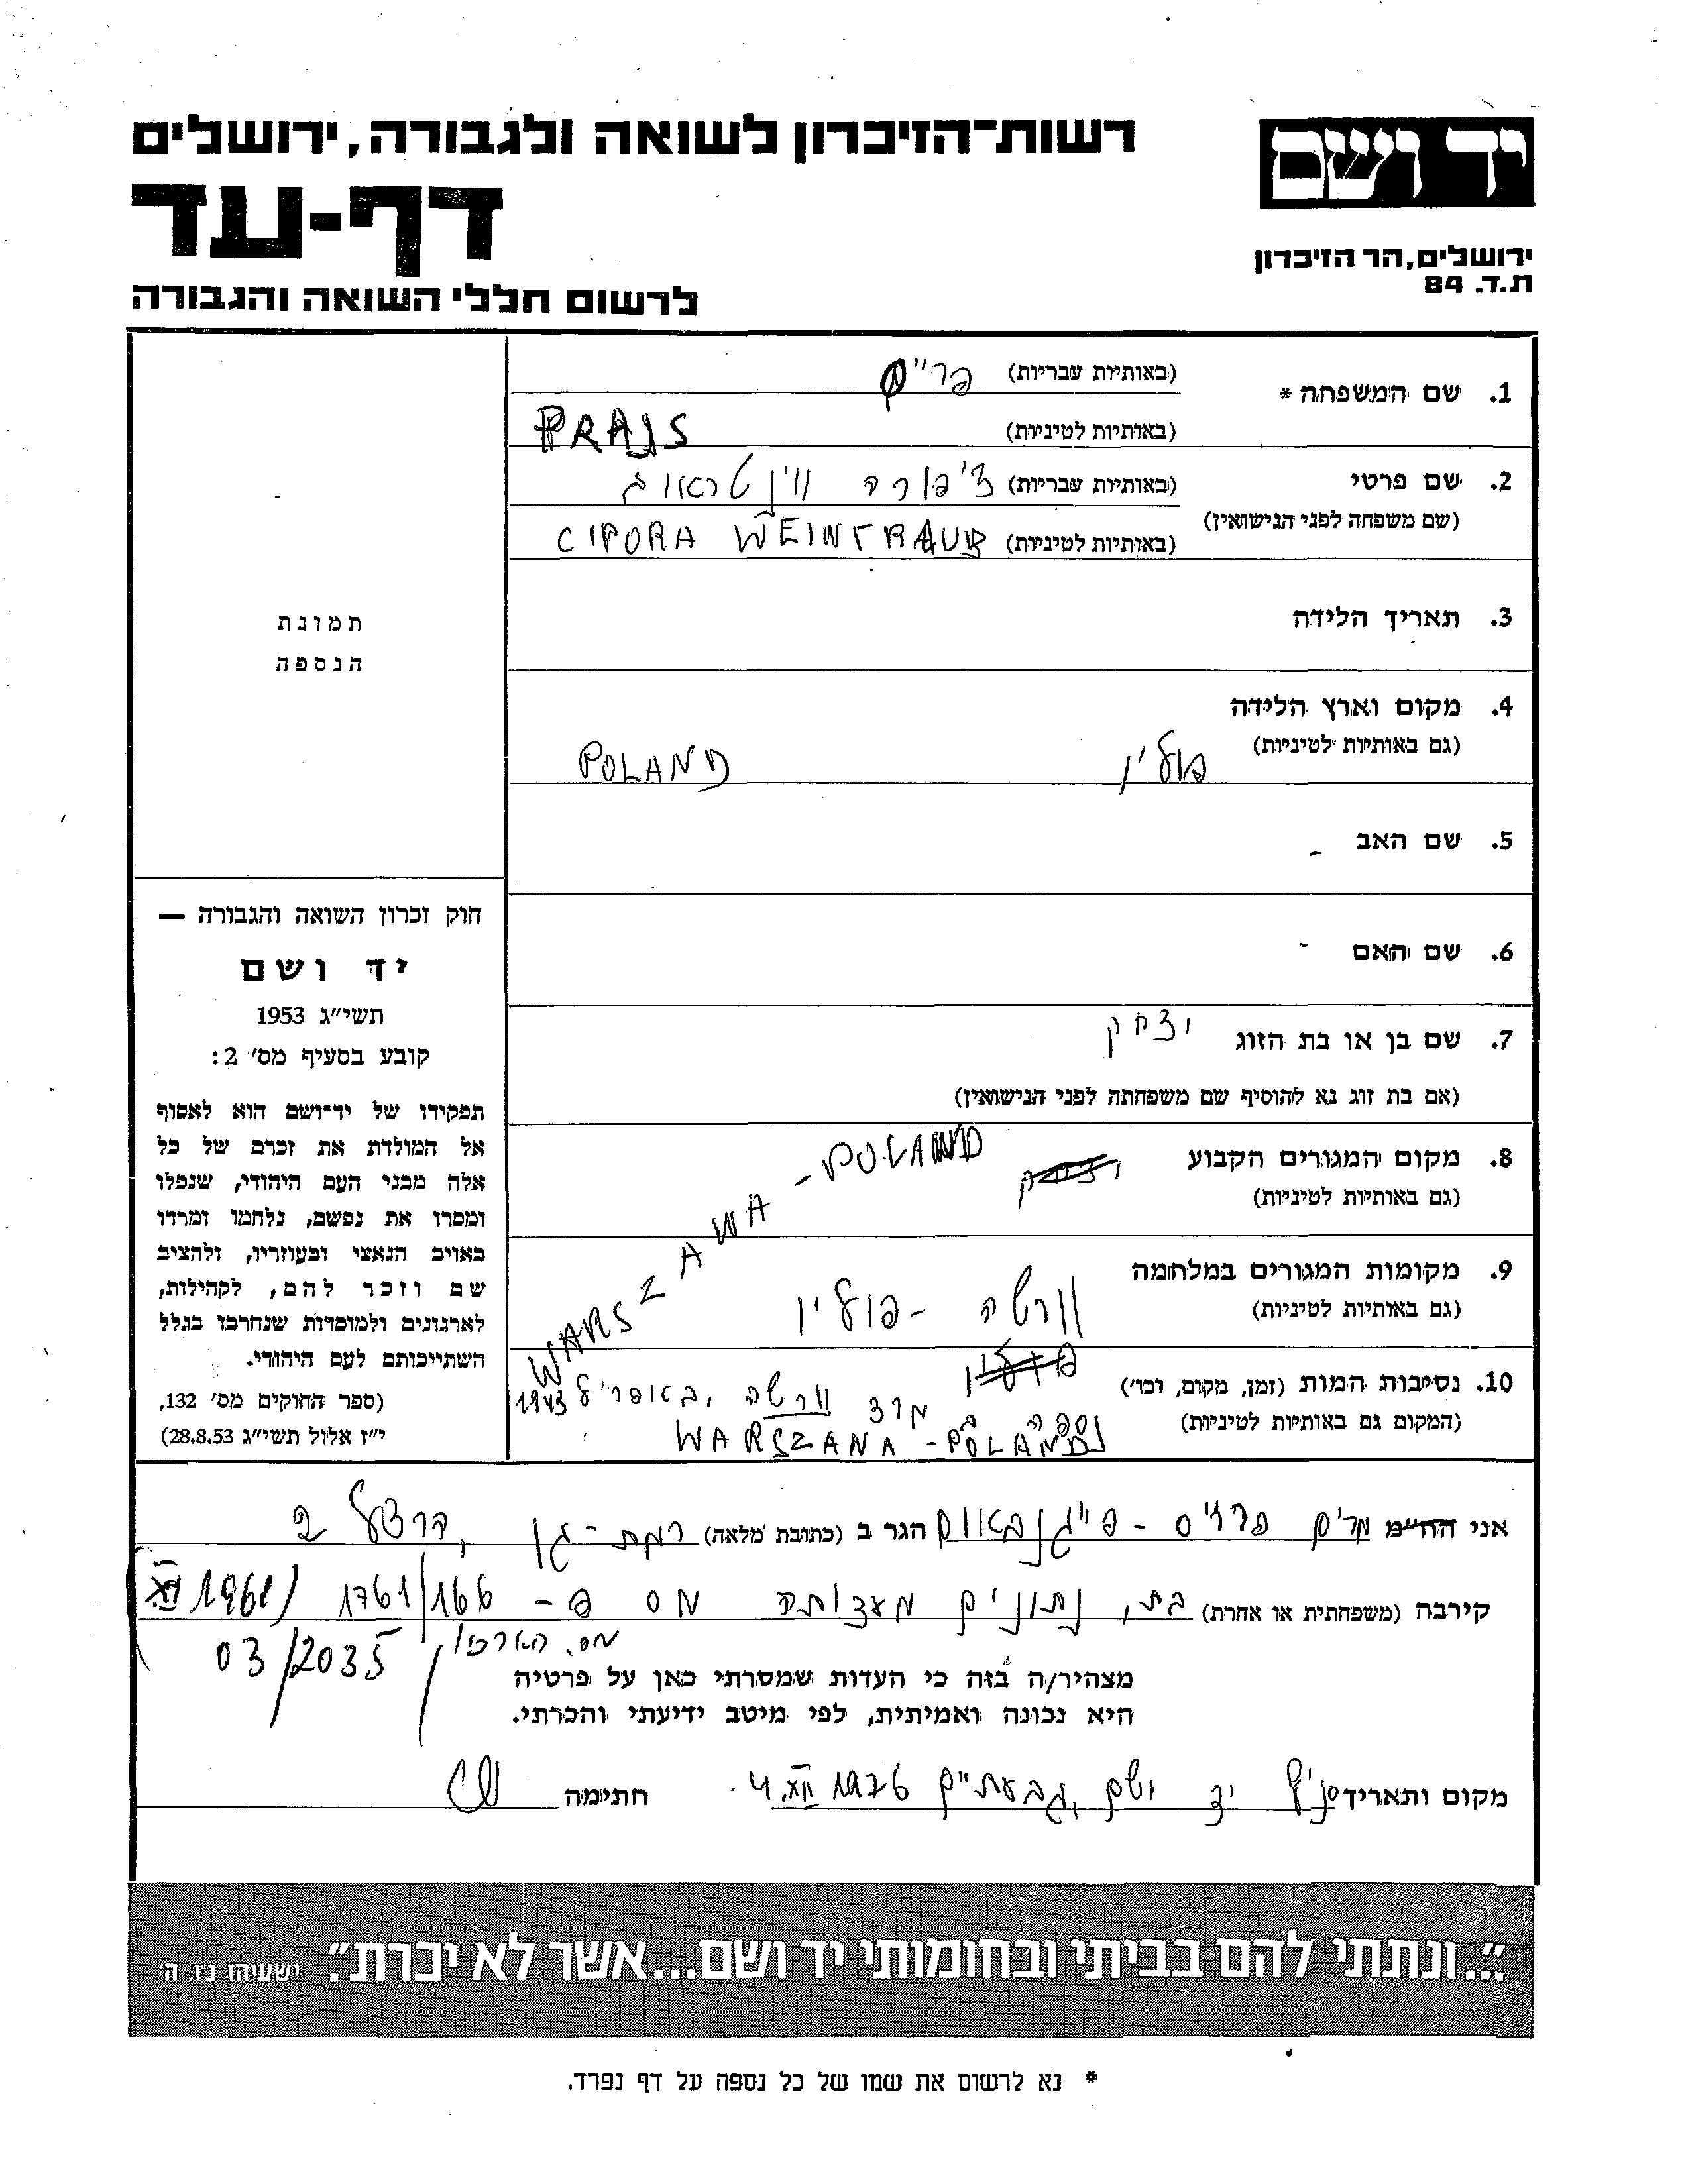 רשות־הזיכרון לשואה ולגבורה, ירושלים
יד ושם
דף-עד
ירושלים, הר הזיכרון
ת.ד. 84
לרשום חללי השואה והגבורה
1. שם המשפחה * (באותיות עבריות) פרייס
(באותיות לטיניות) PRAJS
2. שם פרטי (באותיות עבריות) ציפורה ווינטראוב
(שם משפחה לפני הנישואין)
(באותיות לטיניות) CIPORA WEINTRAUB
3. תאריך הלידה
תמונת
הנספה
4. מקום וארץ הלידה
(גם באותיות לטיניות) פולין POLAND
5. שם האב -
6. שם האם -
7. שם בן או בת הזוג יצחק
(אם בת זוג נא להוסיף שם משפחתה לפני הנישואין)
8. מקום המגורים הקבוע WARSZAWA - POLAND
(גם באותיות לטיניות)
9. מקומות המגורים במלחמה
(גם באותיות לטיניות) וורשה - פולין
10. נסיבות המות (זמן, מקום, וכו') נספה ב מרד וורשה, באפריל 1943
(המקום גם באותיות לטיניות) WARSZANA - POLAND
חוק זכרון השואה והגבורה —
יד ושם
תשי״ג 1953
קובע בסעיף מס׳ 2:
תפקידו של יד־ושם הוא לאסוף
אל המולדת את זכרם של כל
אלה מבני העם היהודי, שנפלו
ומסרו את נפשם, נלחמו ומרדו
באויב הנאצי ובעוזריו, ולהציב
שם וזכר להם, לקהילות,
לארגונים ולמוסדות שנחרבו בגלל
השתייכותם לעם היהודי.
(ספר החוקים מס׳ 132,
י״ז אלול תשי״ג 28.8.53)
אני הח״מ מרים פרייס - פייגנבאום הגר ב (כתובת מלאה) רמת-גן, הרצל 2
קירבה (משפחתית או אחרת) בת, נתונים מעדותה מס פ- 1761/166 / 1961 XI
מס. הארכיון 03/2035
מצהיר/ה בזה כי העדות שמסרתי כאן על פרטיה
היא נכונה ואמיתית, לפי מיטב ידיעתי והכרתי.
מקום ותאריך סניף יד ושם, גבעתיים 4.XII.1976 חתימה
״...ונתתי להם בביתי ובחומותי יד ושם...אשר לא יכרת״. ישעיהו נ״ו ה׳
* נא לרשום את שמו של כל נספה על דף נפרד.